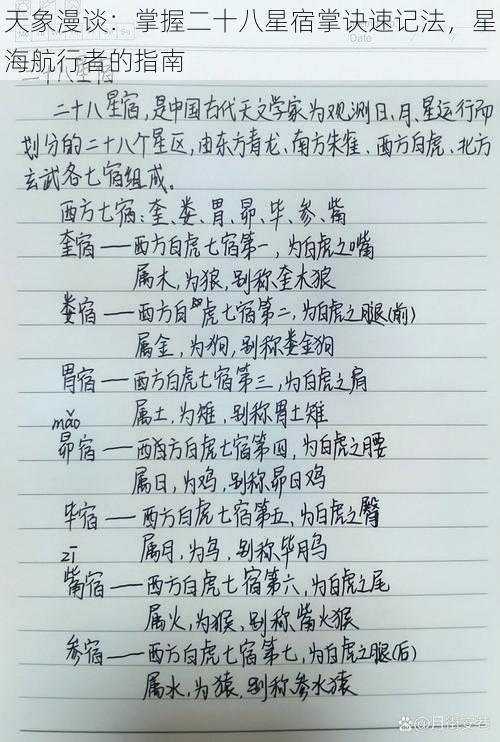 天象漫谈：掌握二十八星宿掌诀速记法，星
海航行者的指南
二十八星宿
二十八星宿，是中国古代天文学家为观测日、月、星运行而
划分的二十八个星区，由东方青龙、南方朱雀、西方白虎、北方
玄武各七宿组成。
西方七宿：奎、娄、胃、昴、毕、参、觜
奎宿——西方白虎七宿第一，为白虎之嘴
属木，为狼，别称奎木狼
娄宿——西方白虎七宿第二，为白虎之腿(前)
属金，为狗，别称娄金狗
胃宿——西方白虎七宿第三，为白虎之肩
属土，为雉，别称胃土雉
mǎo
昴宿——西方白虎七宿第四，为白虎之腰
属日，为鸡，别称昴日鸡
毕宿——西方白虎七宿第五，为白虎之臀
属月，为乌，别称毕月乌
zī
觜宿——西方白虎七宿第六，为白虎之尾
属火，为猴，别称觜火猴
参宿——西方白虎七宿第七，为白虎之腿(后)
属水，为猿，别称参水猿